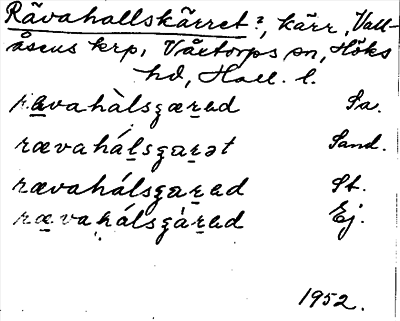 Rävahallskärret?, kärr, Vall-
åsens krp, Våxtorps sn, Höks
hd, Hall. l.
rævahàlsgæræd Sa.
rævahálsgarət Sand.
rævahálsgaræd St.
rævahálsgàræd Ej.
1952.